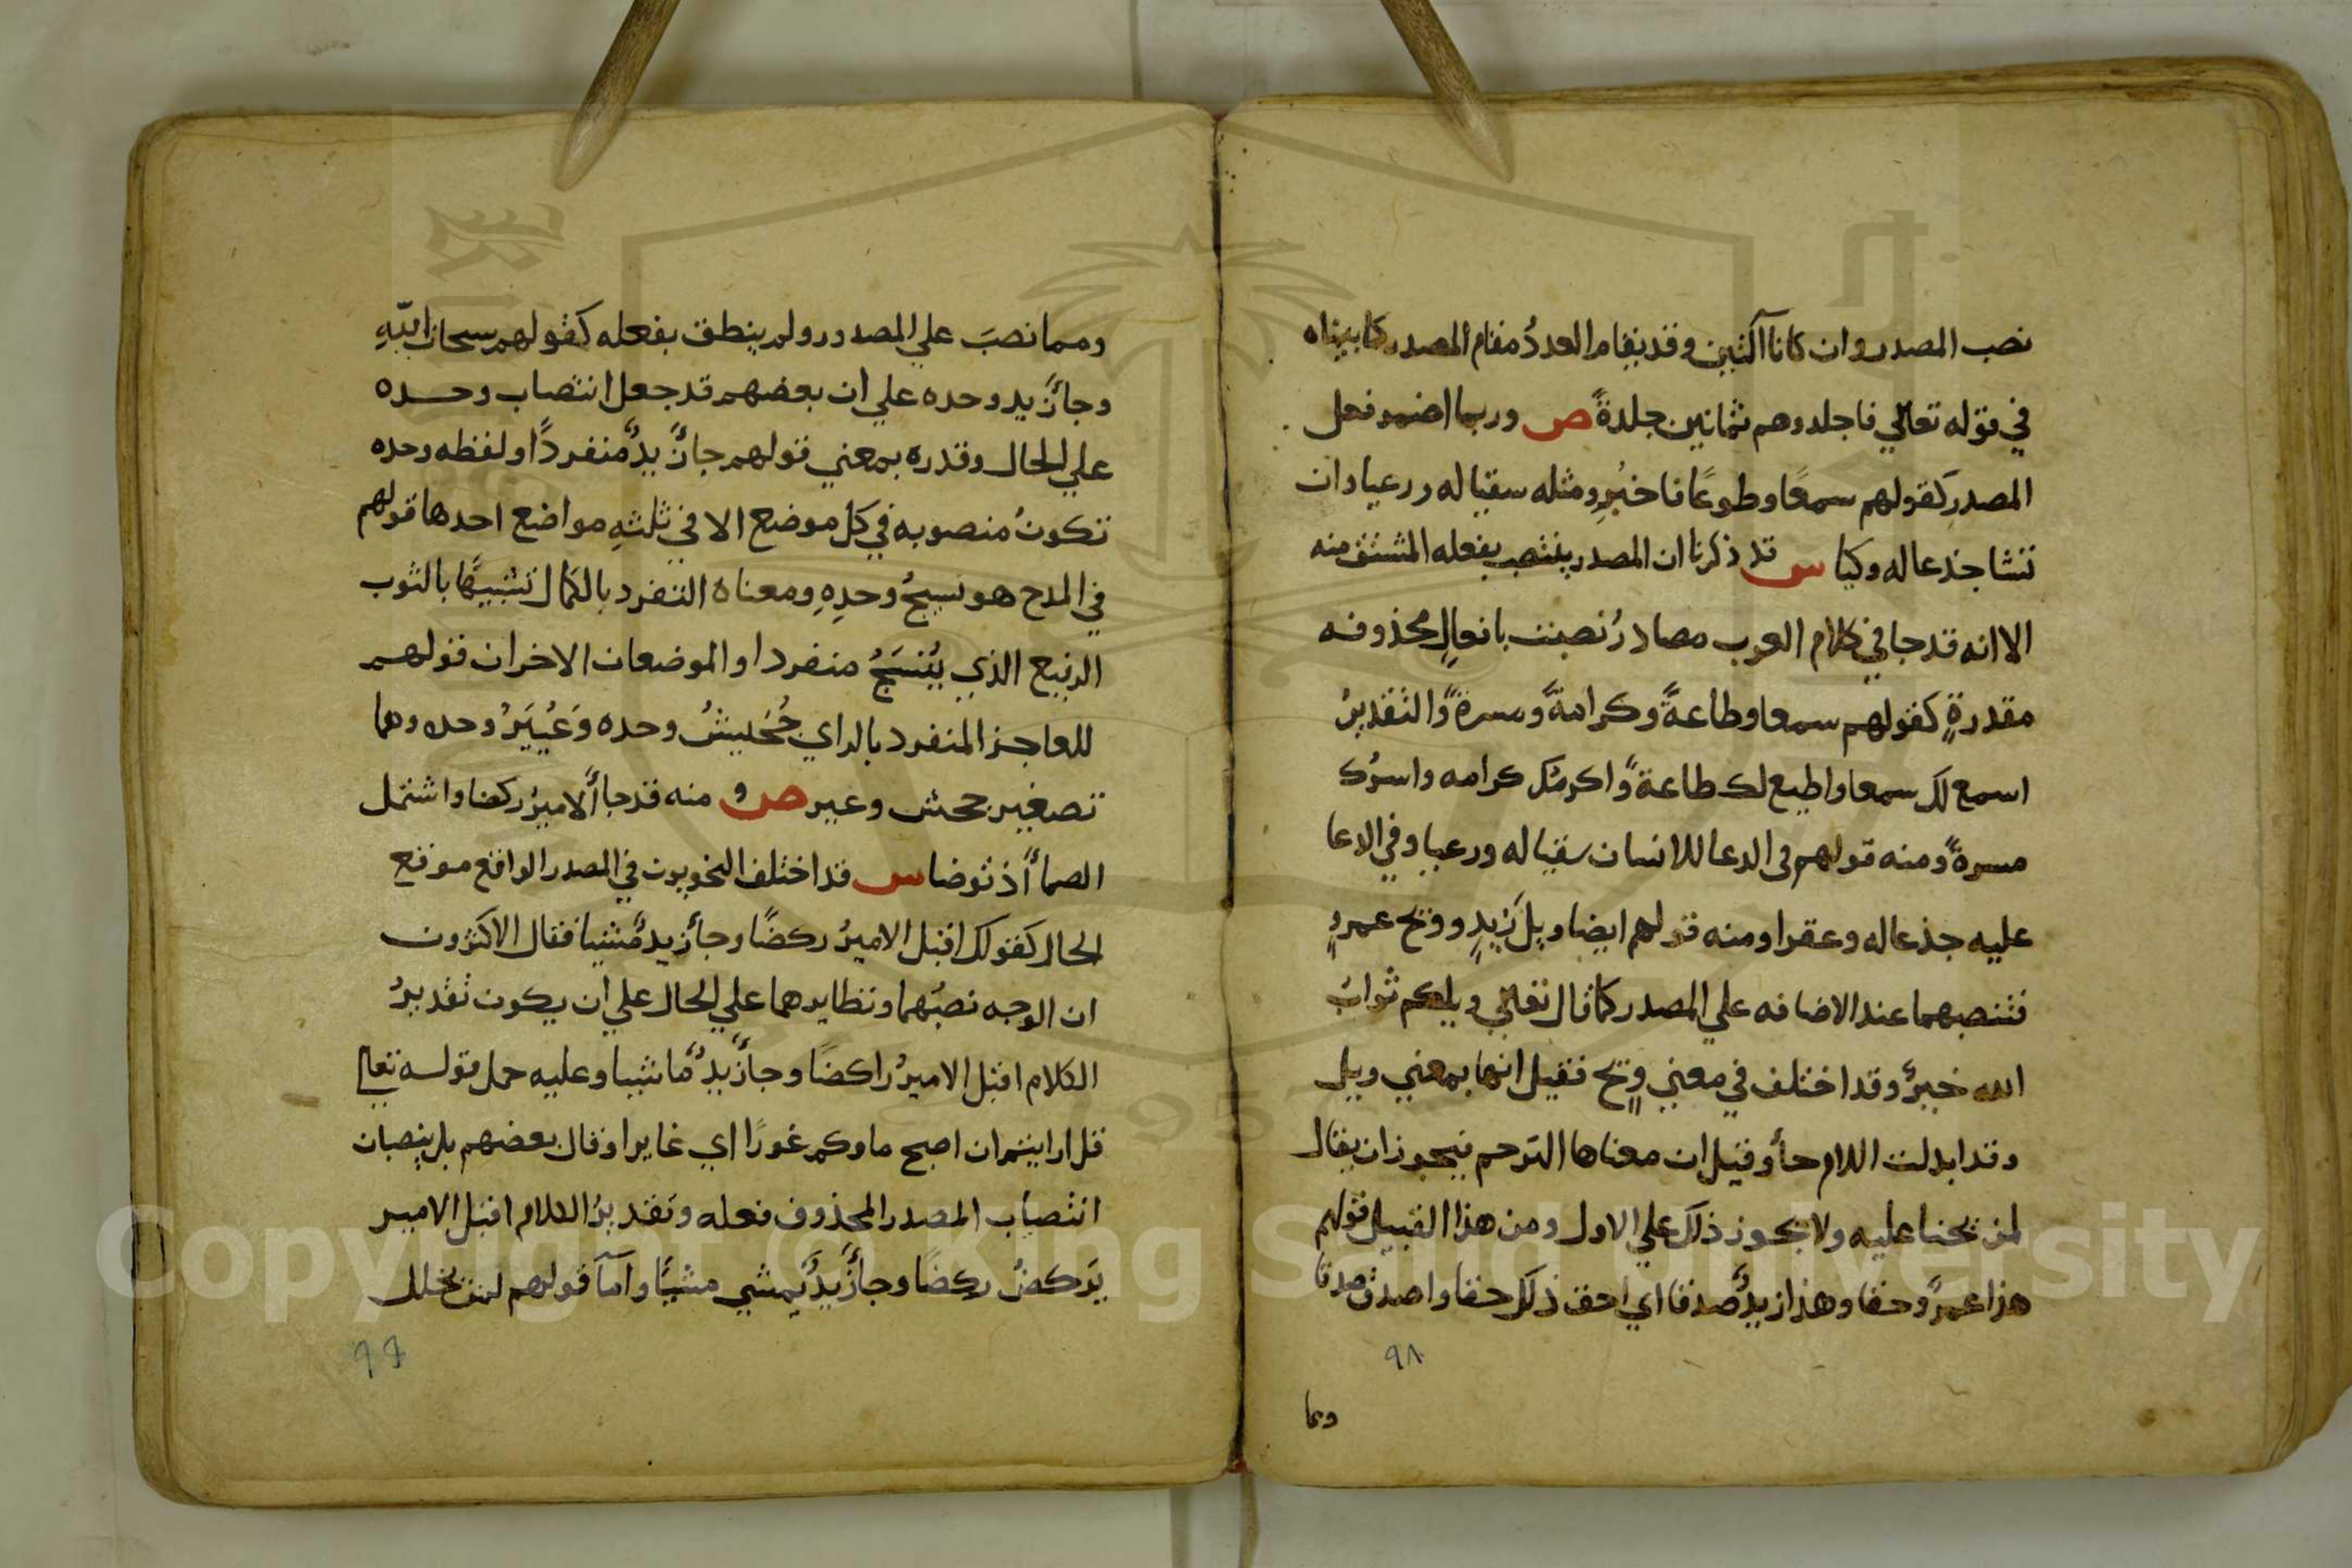 نصب المصدر وان كانا آلتين وقد يقام العددُ مقام المصدر كما بيناه
في قوله تعالي فاجلدوهم ثمانين جلدةً ص وربما اضمر فعل
المصدر كقولهم سمعًا وطوعًا فاخبُرِ ومثله سقيا له ورعيا وان
تشا جذعا له وكيا س قد ذكرنا ان المصدر ينتصب بفعله المشتق منه
الا انه قد جا في كلام العرب مصادرُ نصبت بافعالٍ محذوفه
مقدرةٍ كقولهم سمعا وطاعةً وكرامةً ومسرةً والتقديرُ
اسمع لك سمعا واطيع لك طاعةً واكرمُك كرامه واسرُك
مسرةً ومنه قولهم في الدعا للانسان سقيا له ورعيا وفي الدعا
عليه جذعا له وعقرا ومنه قولهم ايضا ويل زيدٍ وويح عمرٍو
فتنصبهما عند الاضافه علي المصدر كما قال تعالي ويلكم ثوابُ
الله خيرٌ وقد اختلف في معني ويح فقيل انها بمعني ويل
وقد ابدلت اللام حأً وقيل ان معناها الترحم فيجوز ان يقال
لمن تحنا عليه ولا يجوز ذلك علي الاول ومن هذا القبيل قولهم
هذا عمرٌو حقا وهذا زيدٌ صدقا اي احق ذلك حقا واصدق صدقا
٩٨
ومما
ومما نصبَ علي المصدور ولم ينطق بفعله كقولهم سبحان اللّهِ
وجأ زيد وحده علي ان بعضهم قد جعل انتصاب وحده
علي الحال وقدره بمعني قولهم جأ زيدٌ منفردًا ولفظه وحده
تكونُ منصوبه في كل موضع الا في ثلثهِ مواضع احدها قولهم
في المدح هو نسيجُ وحدِهِ ومعناه التفرد بالكمال تشبيهًا بالثوب
الرفيع الذي يُنسَجُ منفردا والموضعان الاخران قولهم
للعاجز المنفرد بالراي جُحَيشُ وحده وَعُيَيَرُ وحده وهما
تصغير جحش وعير ص و منه قد جأ الاميرُ ركضا واشتمل
الصمأ اذ توضا س قد اختلف النحويون في المصدر الواقع موقع
الحال كقولك اقبل الاميرُ ركضًا وجأ زيدٌ مشيا فقال الاكثرون
ان الوجه نصبُهما ونظايرهما علي الحال علي ان يكون تقديرُ
الكلام اقبل الاميرُ راكضًا وجأ زيدٌ ماشيا وعليه حمل قوله تعالي
قل ارايتم ان اصبح ماوكم غورًا اي غايرا وقال بعضهم بل ينصبان
انتصاب المصدر المحذوف فعله وتقديرُ الكلام اقبل الامير
يَركضُ ركضًا وجأ زيدٌ يمشي مشيًا واما قولهم لمن تخلل
٩٩